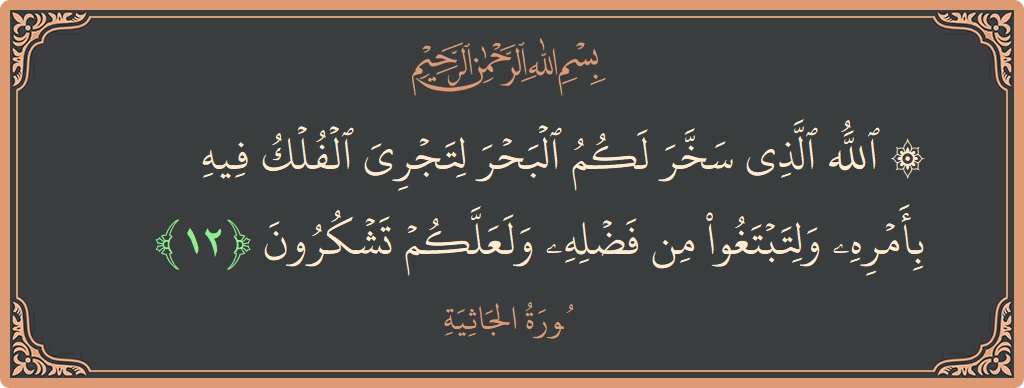 بِسْمِ اللَّهِ الرَّحْمَٰنِ الرَّحِيمِ
۞ ٱللَّهُ ٱلَّذِى سَخَّرَ لَكُمُ ٱلْبَحْرَ لِتَجْرِىَ ٱلْفُلْكُ فِيهِ
بِأَمْرِهِۦ وَلِتَبْتَغُوا۟ مِن فَضْلِهِۦ وَلَعَلَّكُمْ تَشْكُرُونَ ﴿١٢﴾
سُورَةُ الجَاثِيَةِ